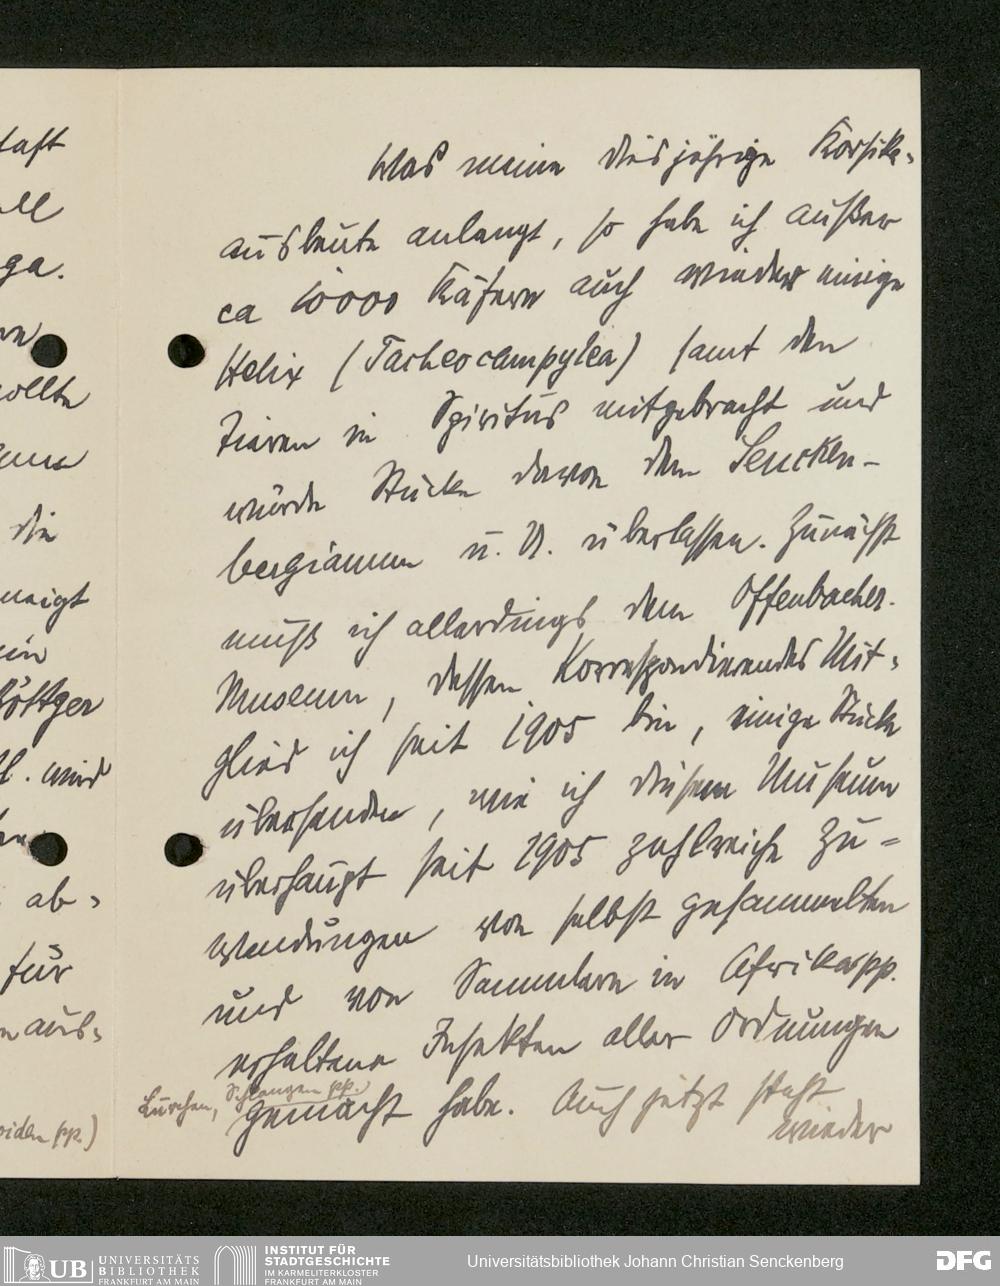 taft
ell
ga.
sollte
die
neigt
ein
Böttger
tl. wird
ab-
für
n aus-
oiden pp.)
Was meine diesjährige Korsika-
ausbeute anlangt, so habe ich außer
ca 10000 Käfern auch wieder einige
Helix (Tacheocampylea) samt den
Tieren in Spiritus mitgebracht und
würde Stücke davon dem Sencken-
bergianum u. U. überlassen. Zunächst
muß ich allerdings dem Offenbacher
Museum, dessen Korrespondierendes Mit-
glied ich seit 1905 bin, einige Stücke
übersenden, wie ich diesem Museum
überhaupt seit 1905 zahlreiche Zu-
wendungen von selbst gesammelten
und von Sammlern in Afrika pp.
erhaltene Insekten aller Ordnungen
Lurchen, Schlangen pp.
gemacht habe. Auch jetzt steht
wieder
UB UNIVERSITÄTS
BIBLIOTHEK
FRANKFURT AM MAIN
INSTITUT FÜR
STADTGESCHICHTE
IM KARMELITERKLOSTER
FRANKFURT AM MAIN
Universitätsbibliothek Johann Christian Senckenberg
DFG